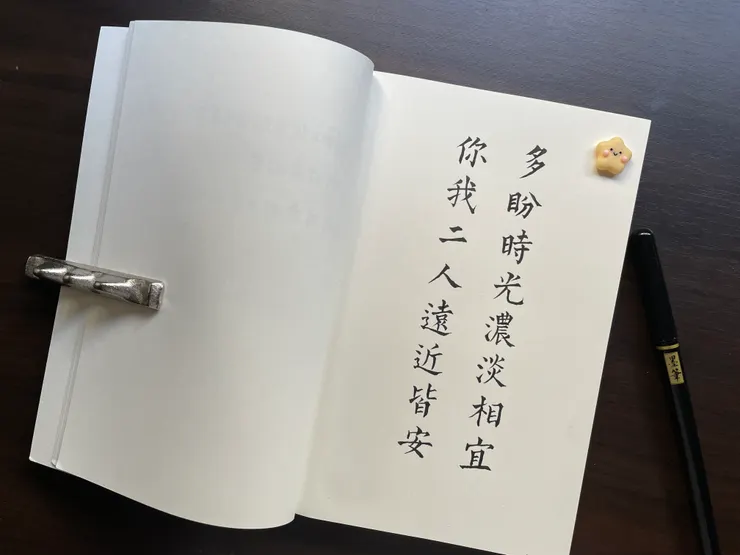 多盼時光濃淡相宜
你我二人遠近皆安
墨筆